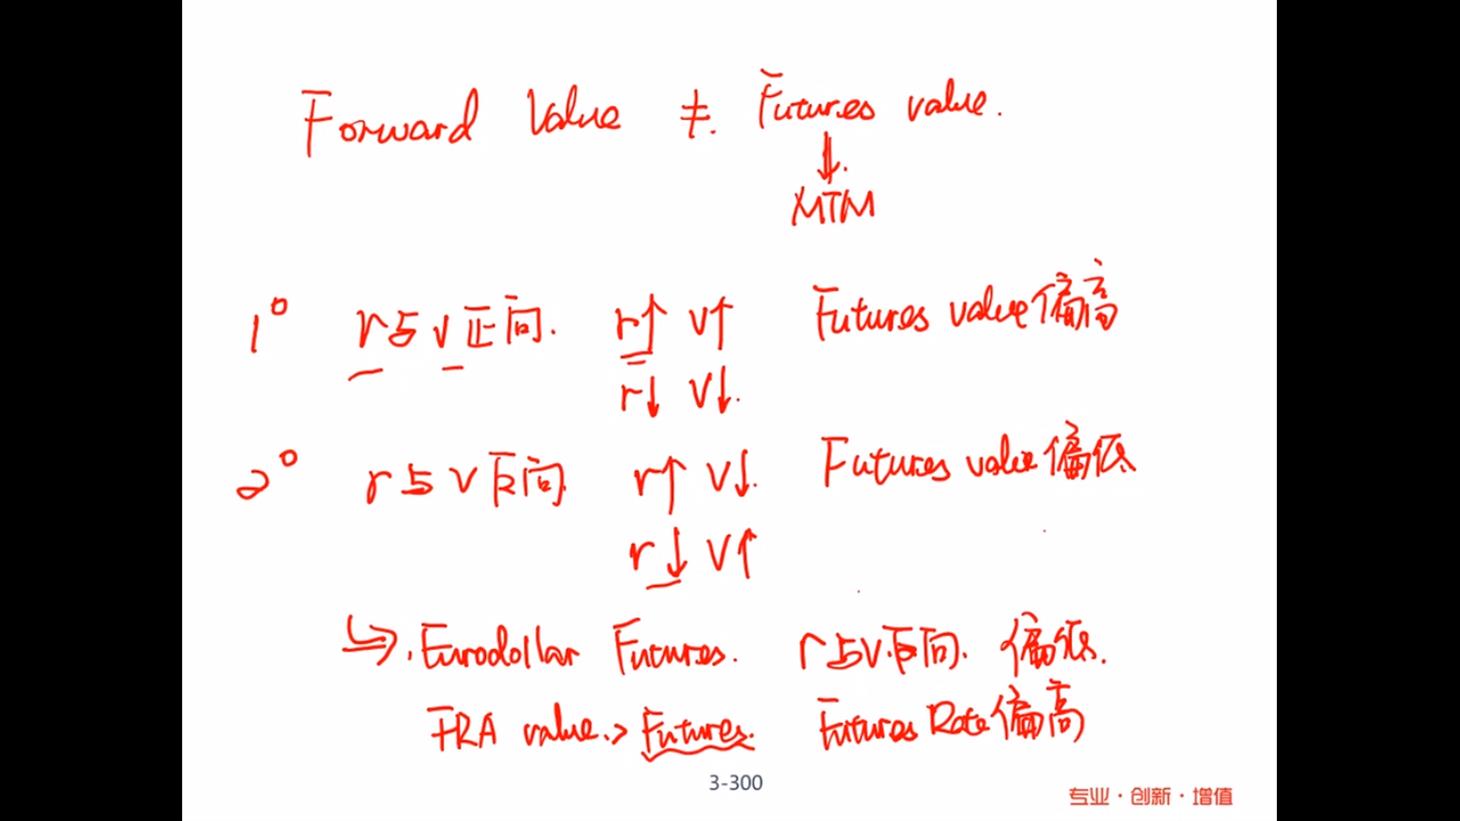 Forward Value ≠. Futures value.
↓.
MTM
1° r与v正向. r↑ v↑ Futures value偏高
r↓ v↓.
2° r与v反向 r↑ v↓. Futures value偏低
r↓ v↑
↪. Eurodollar Futures. r与v反向. 偏低.
FRA value.> Futures. Futures Rate偏高
3-300
专业·创新·增值